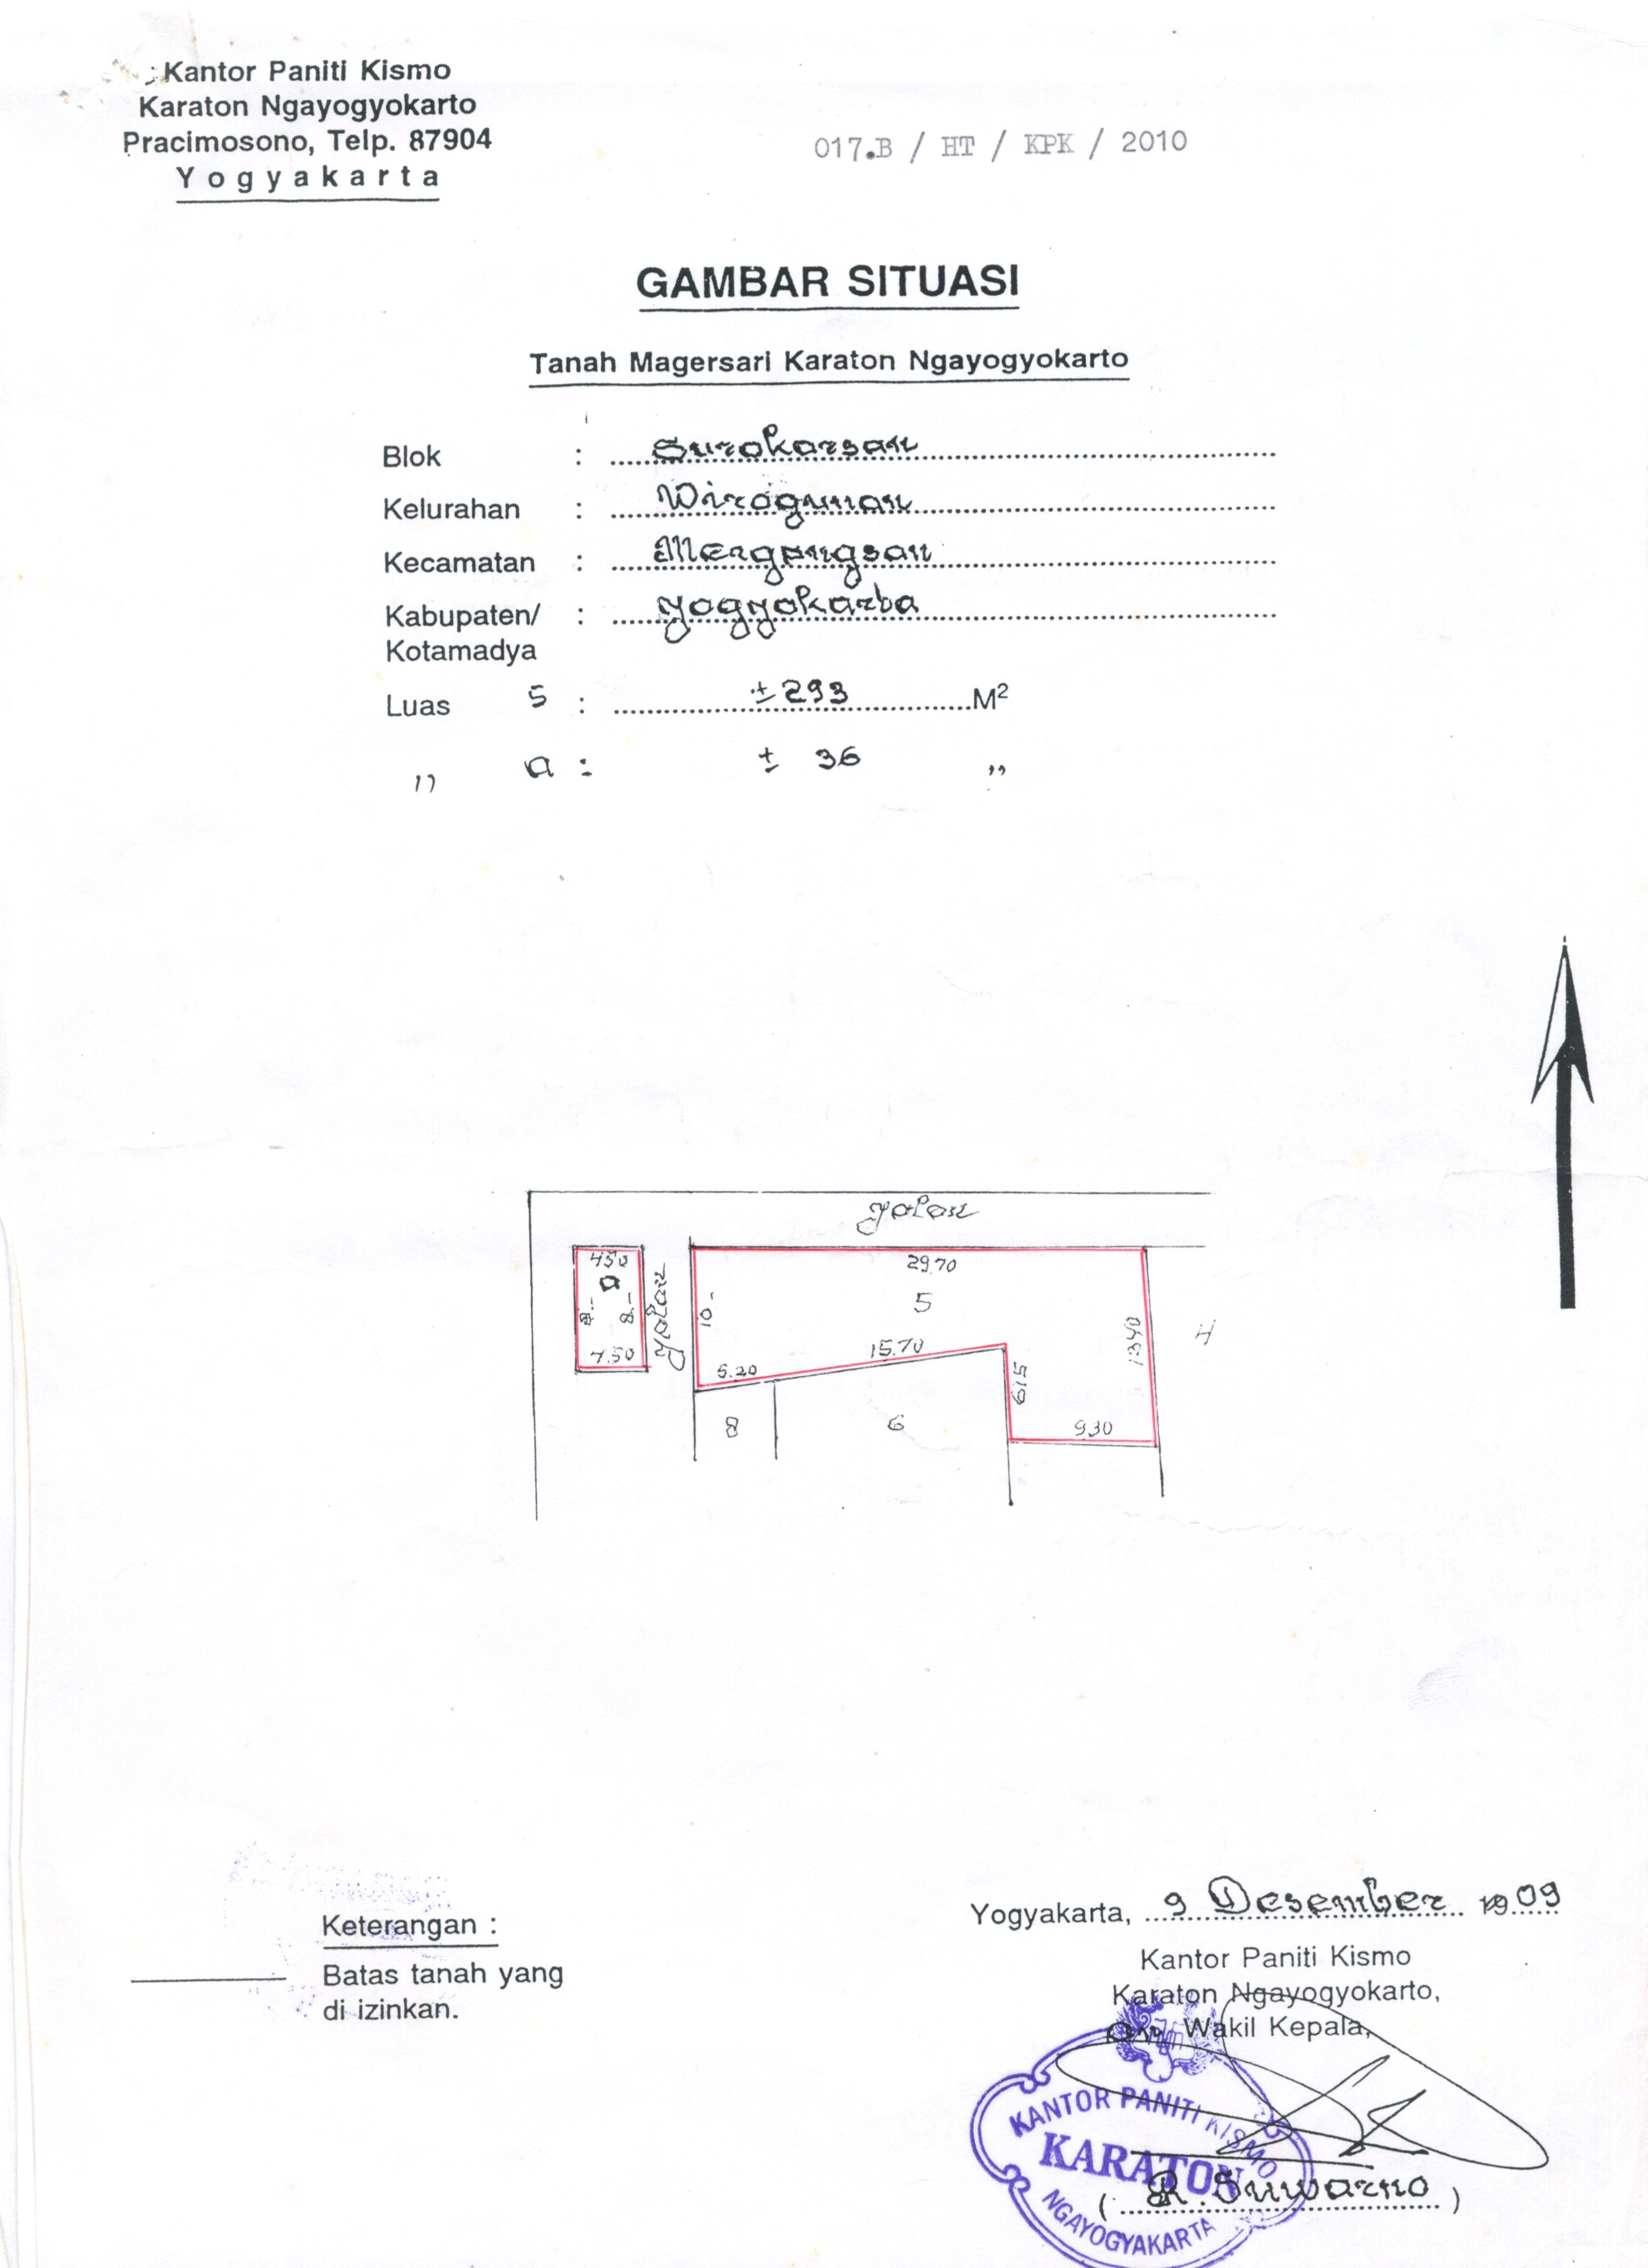 Kantor Paniti Kismo
Karaton Ngayogyokarto
Pracimosono, Telp. 87904
Yogyakarta
017.B / HT / KPK / 2010
GAMBAR SITUASI
Tanah Magersari Karaton Ngayogyokarto
Blok : Surokarsan
Kelurahan : Wirogunan
Kecamatan : Mergangsan
Kabupaten/ : Yogyakarta
Kotamadya
Luas 5 : ±293 M²
,, a : ± 36 ,,
Jalan
450
a
8.- 8.-
4.50
Jalan
29.70
5
10.-
15.70
5.20
615
1340
4
8
6
930
Keterangan :
Batas tanah yang
di izinkan.
Yogyakarta, 9 Desember 1909
Kantor Paniti Kismo
Karaton Ngayogyokarto,
Wakil Kepala,
KANTOR PANITI KISMO
KARATON
NGAYOGYAKARTA
( R. Suwarno )